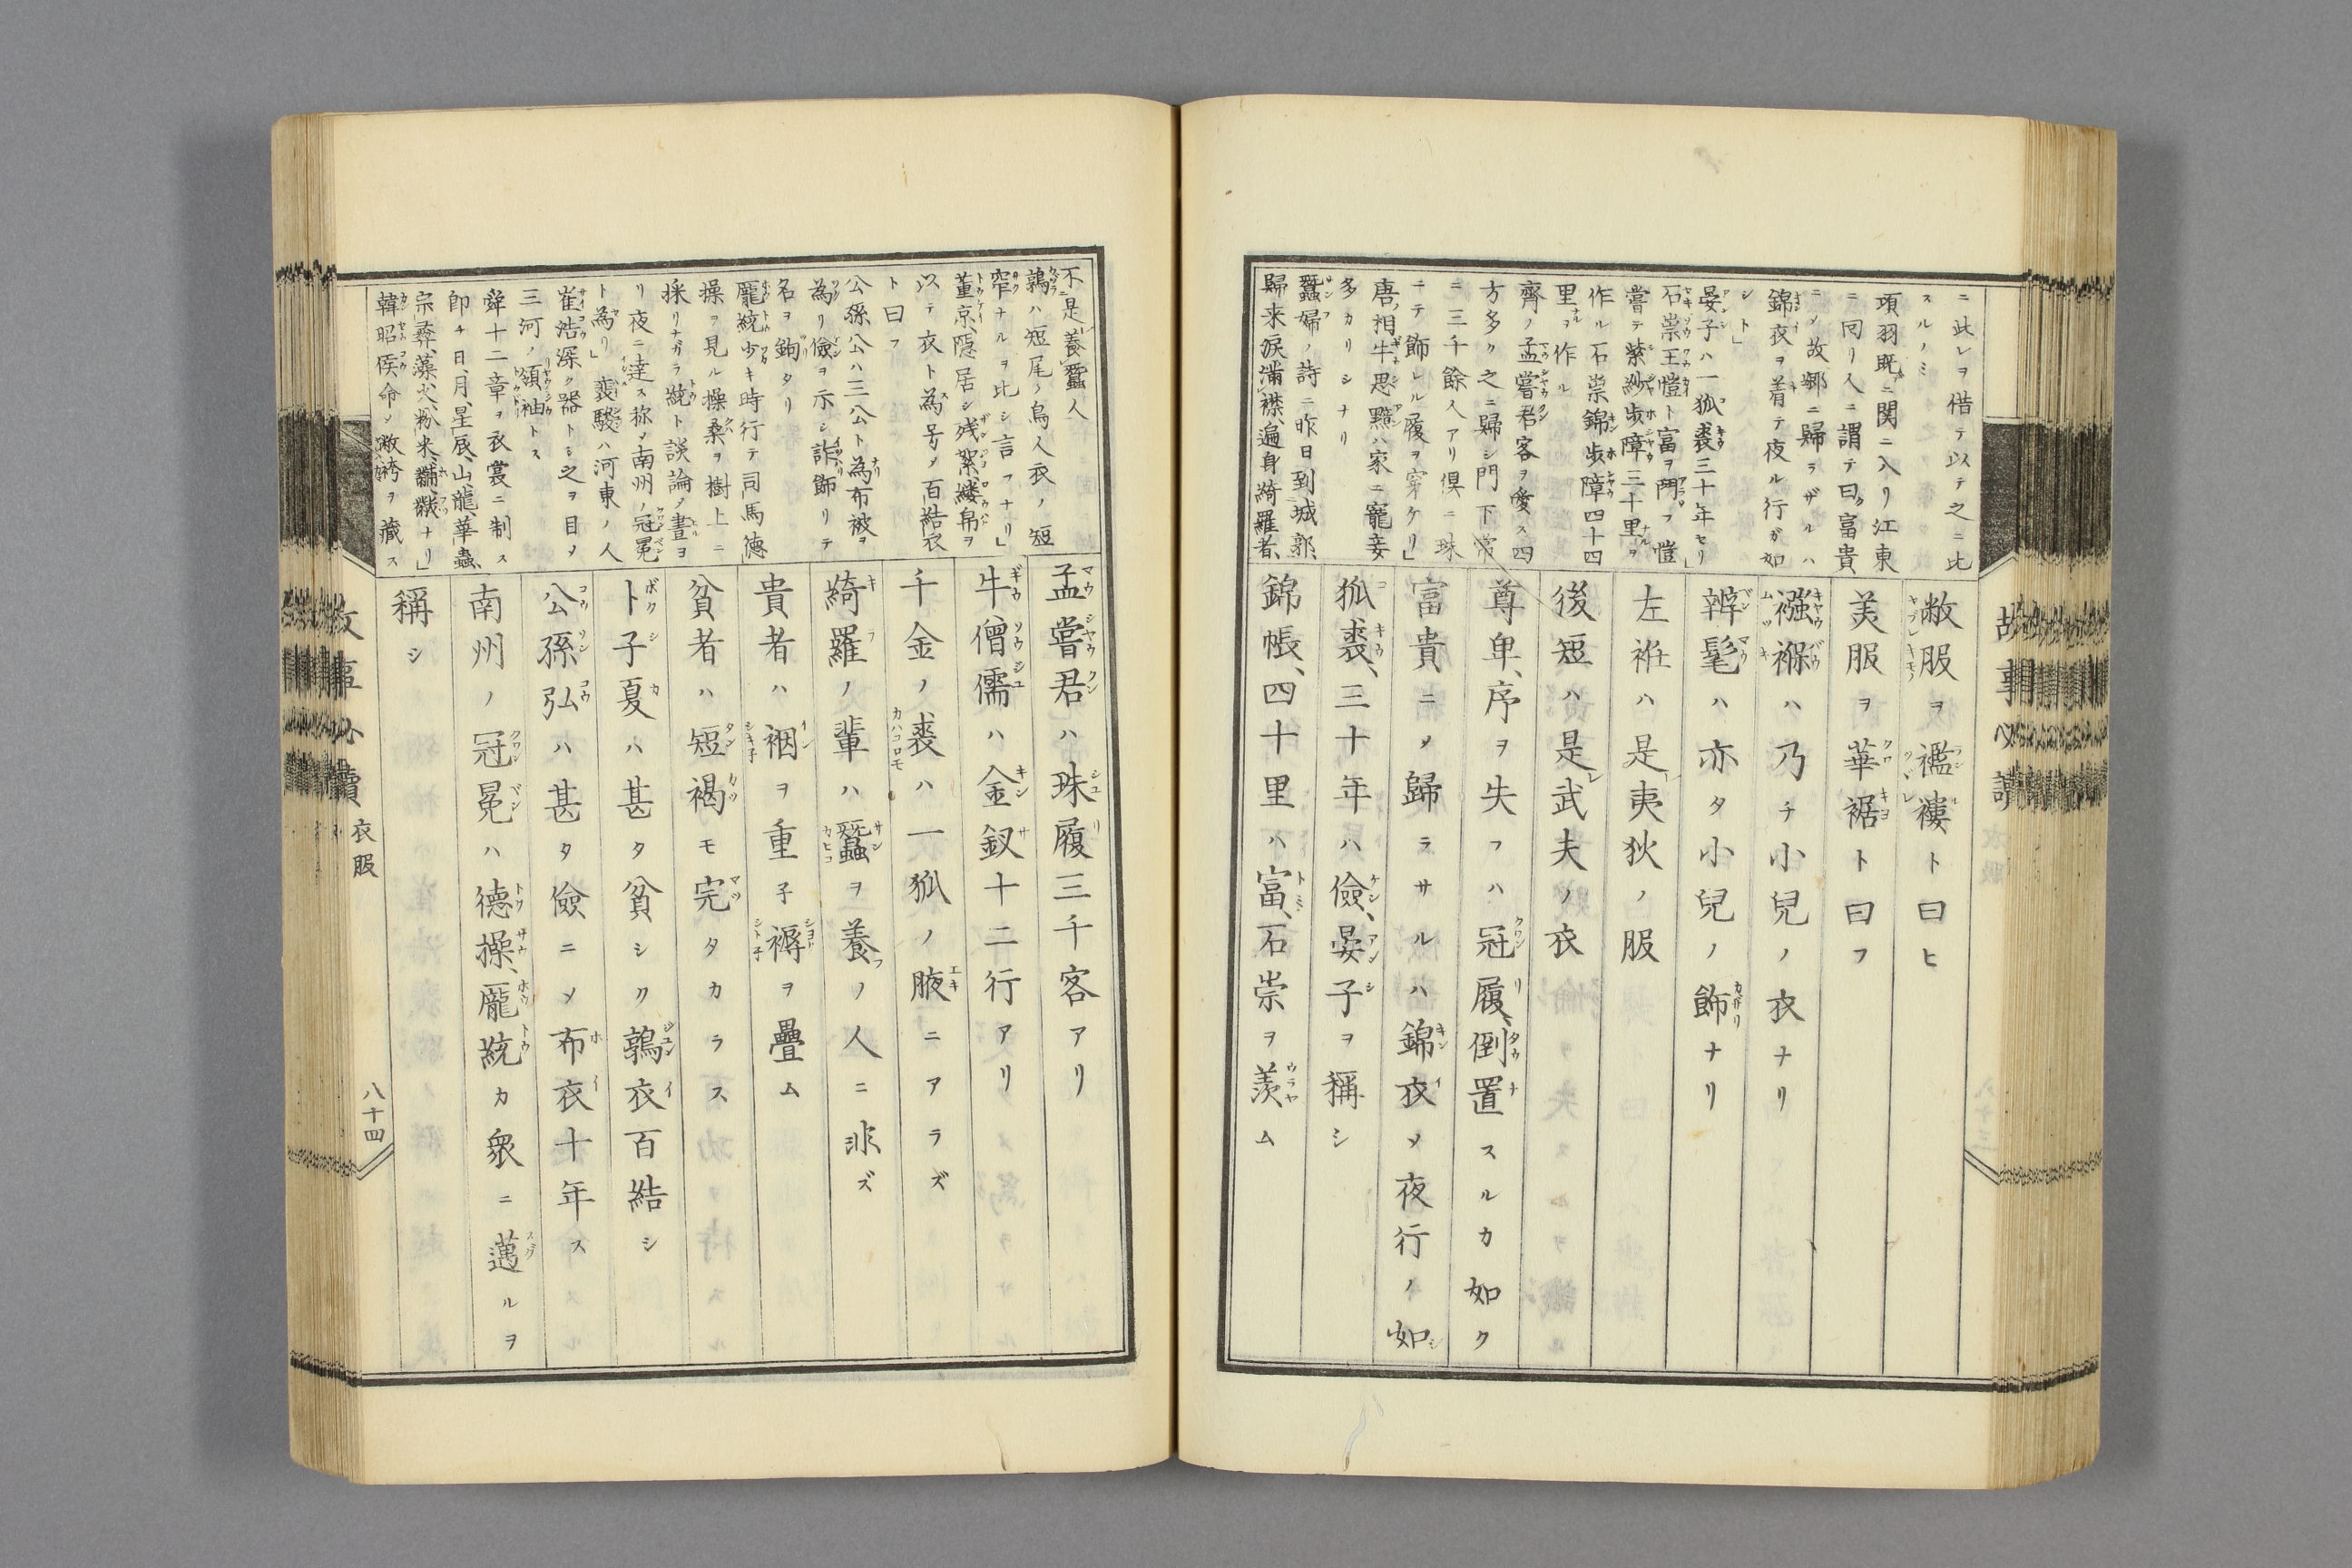 ニ此レヲ借テ以テ之ニ比
スルノミ
項羽既ニ関ニ入リ江東
ニ囘リ人ニ謂テ曰ク富貴
ニメ故郷ニ歸ラザルハ
錦衣ヲ着テ夜ル行ガ如
シト」
晏子ハ一狐裘三十年セリ」
石崇王愷ト富ヲ鬥フ愷
嘗テ紫紗歩障三十里ヲ
作ル石崇錦歩障四十四
里ヲ作ル
齊ノ孟嘗君客ヲ愛ス四
方多ク之ニ歸シ門下常
ニ三千餘人アリ倶ニ珠
ニテ飾レル履ヲ穿ケリ」
唐ノ相牛思黯ハ家ニ寵妾
多カリシナリ
蠶婦ノ詩ニ昨日到城郭
歸来淚滿襟、遍身綺羅者、
敝服ヲ襤褸ト曰ヒ
美服ヲ華裾ト曰フ
襁褓ハ乃チ小兒ノ衣ナリ
辨髦ハ亦タ小兒ノ飾ナリ
左袵ハ是夷狄ノ服
後短ハ是武夫ノ衣
尊卑、序ヲ失フハ冠履、倒置スルカ如ク
富貴ニメ歸ラサルハ錦衣メ夜行ノ如
狐裘、三十年ハ儉、晏子ヲ稱シ
錦帳、四十里ハ富、石崇ヲ羨ム
不是養蠶人
鶉ハ短尾ノ鳥人衣ノ短
窄ナルヲ比シ言フナリ」
董京隠居シ残絮縷帛ヲ
以テ衣ト為号メ百結衣
ト曰フ
公孫公ハ三公ト為布被ヲ
為リ儉ヲ示シ詐飾リテ
名ヲ鉤タリ
龐統少キ時行テ司馬德
操ヲ見ル操桑ヲ樹上ニ
採リナガラ統ト談論メ晝ヨ
リ夜ニ達ス称メ南州ノ冠冕
ト為リ」裴駿ハ河東ノ人
崔浩深ク器トシ之ヲ目メ
三河ノ領袖トス
舜十二章ヲ衣裳ニ制ス
卽チ日、月、星辰、山、龍、華蟲、
宗彛、藻、火、粉米、黼黻ナリ」
韓昭侯命メ敝袴ヲ藏ス
孟嘗君ハ珠履三千客アリ
牛僧儒ハ金釵十二行アリ
千金ノ裘ハ一狐ノ腋ニアラズ
綺羅ノ輩ハ蠶ヲ養フノ人ニ非ズ
貴者ハ裀ヲ重子褥ヲ疊ム
貧者ハ短褐モ完タカラス
卜子夏ハ甚タ貧シク鶉衣百結シ
公孫弘ハ甚タ儉ニメ布衣十年ス
南州ノ冠冕ハ德操、龐統カ衆ニ邁ルヲ
稱シ
衣服
八十四